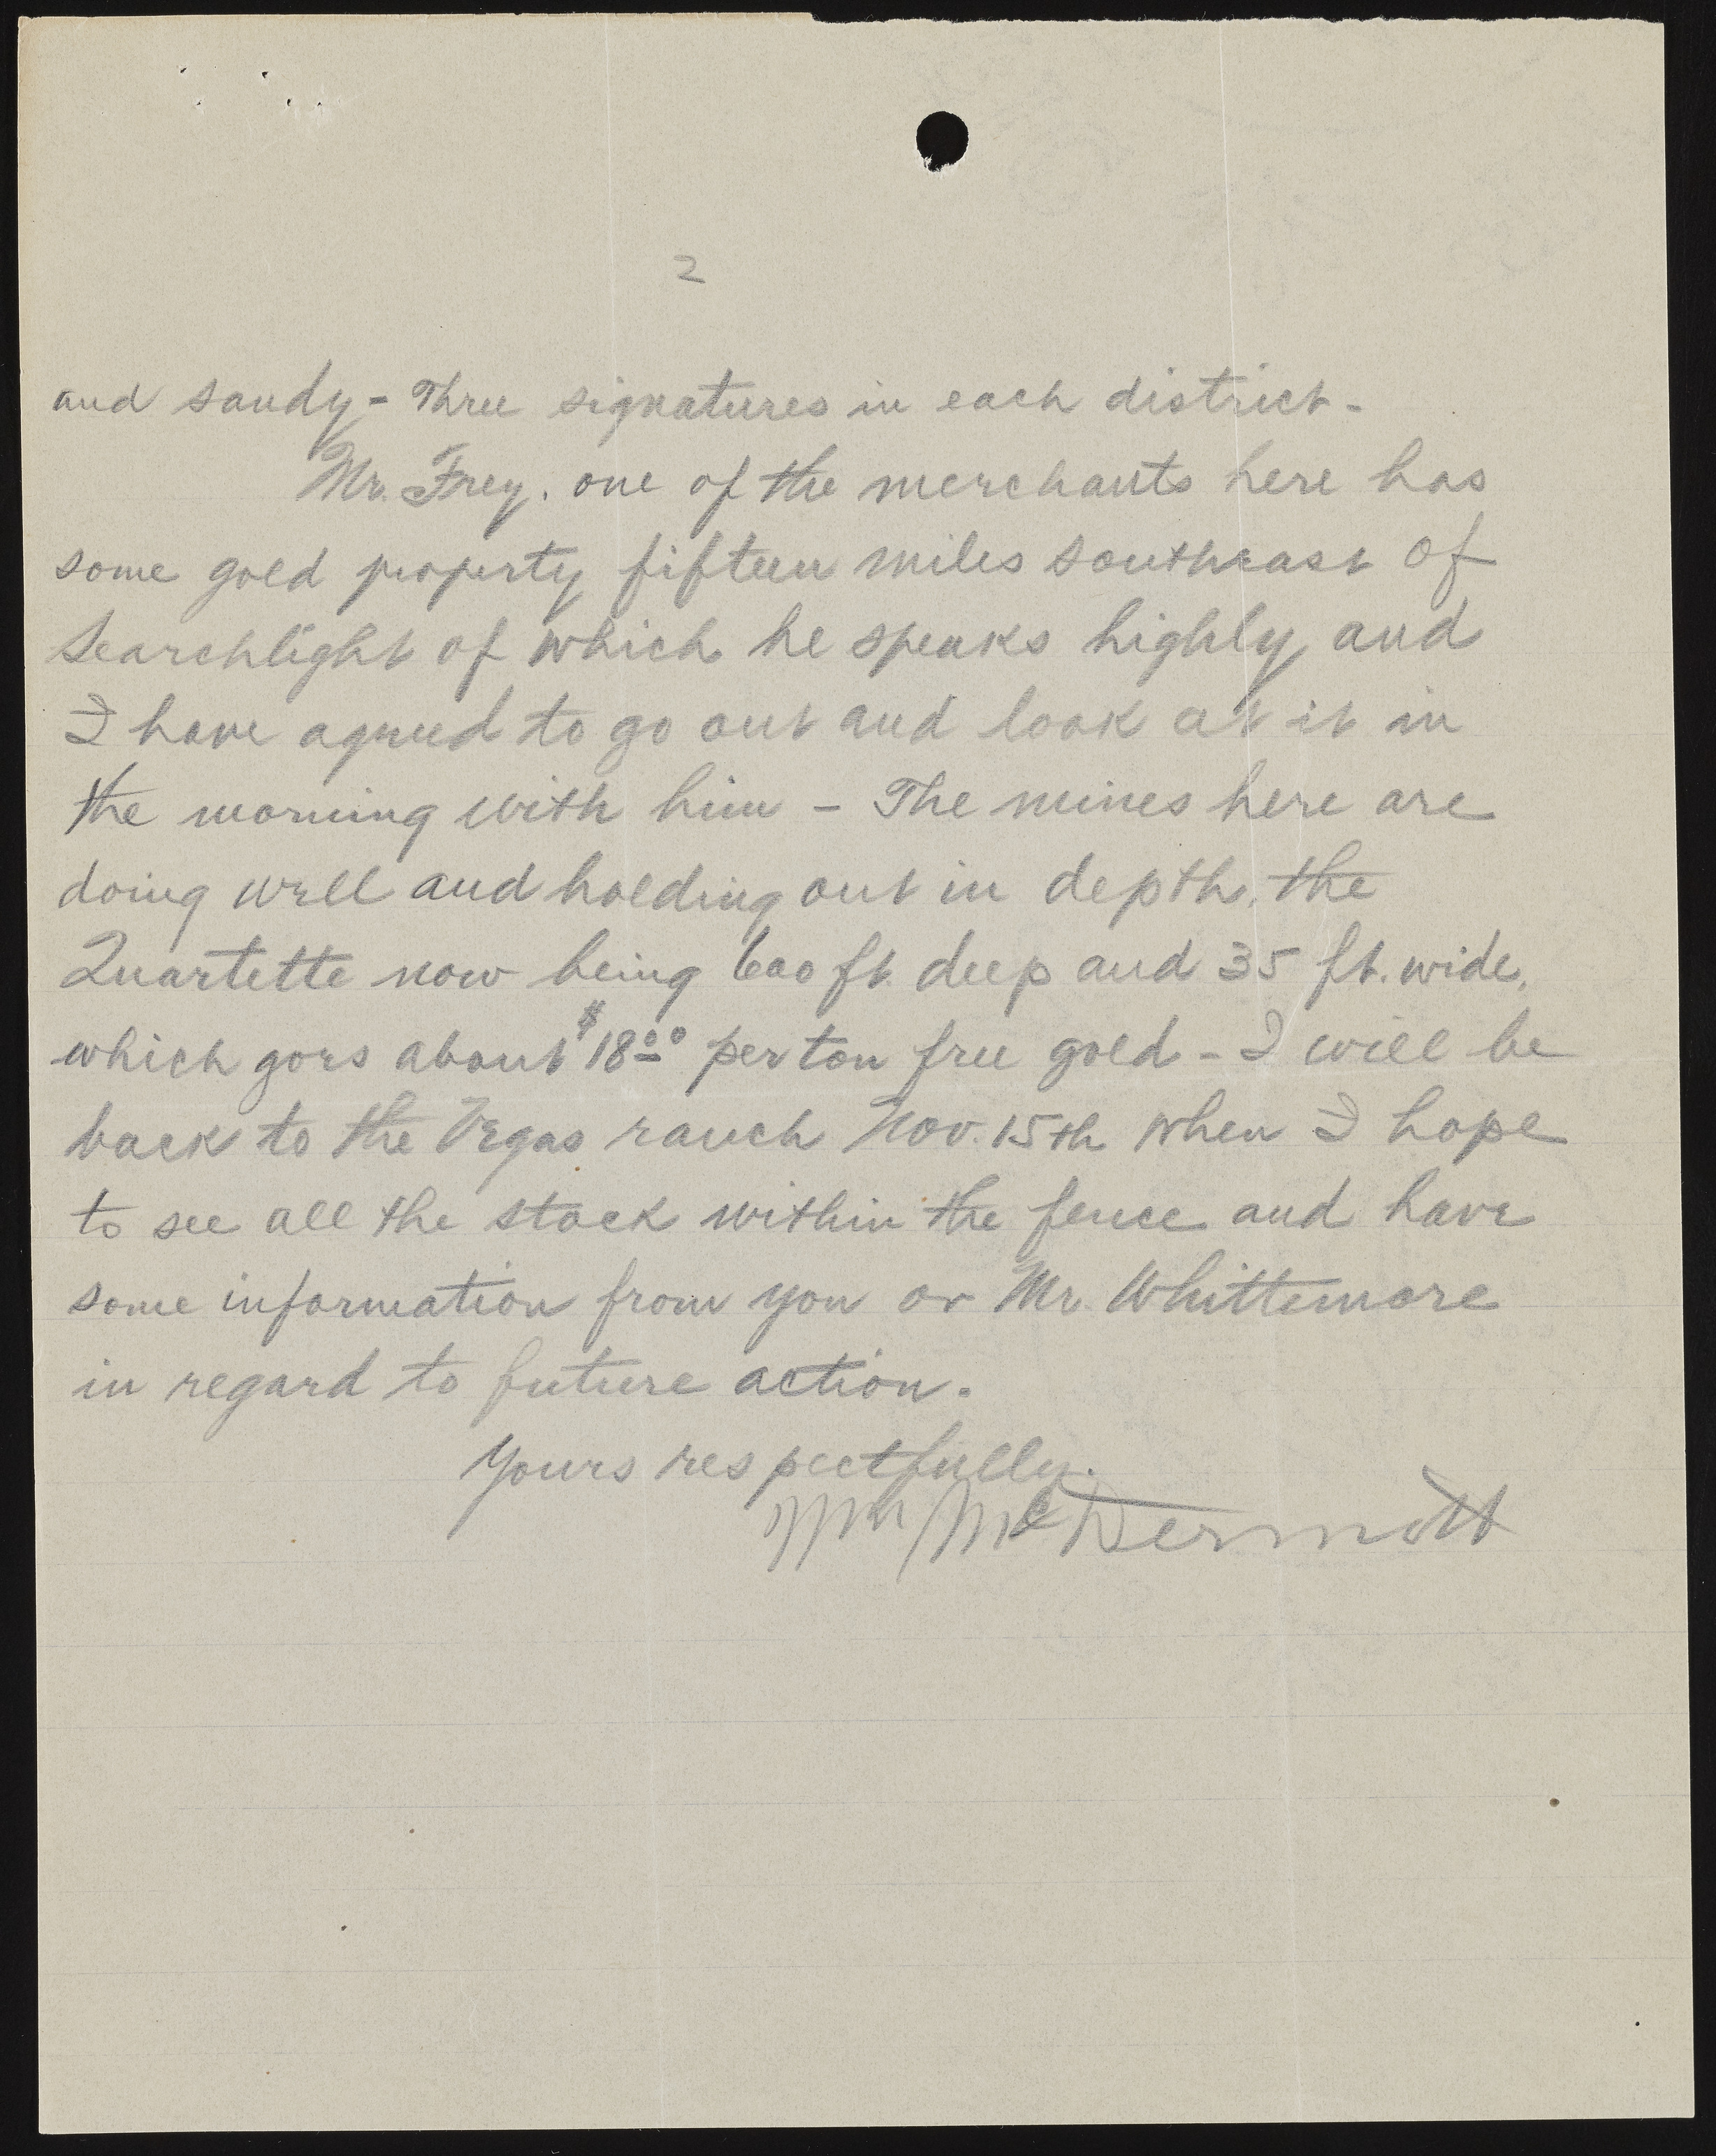 2
and sandy - Three signatures in each district -
Mr. Frey, one of the merchants here has
some gold property fifteen miles southeast of
Searchlight of which he speaks highly and
I have agreed to go out and look at it in
the morning with him - The mines here are
doing well and holding out in depth, the
Quartette now being 600 ft. deep and 35 ft. wide,
which goes about $18.00 per ton free gold - I will be
back to the Vegas ranch Nov. 15th when I hope
to see all the stock within the fence and have
some information from you or Mr. Whittemore
in regard to future action.
Yours respectfully.
Wm McDermott